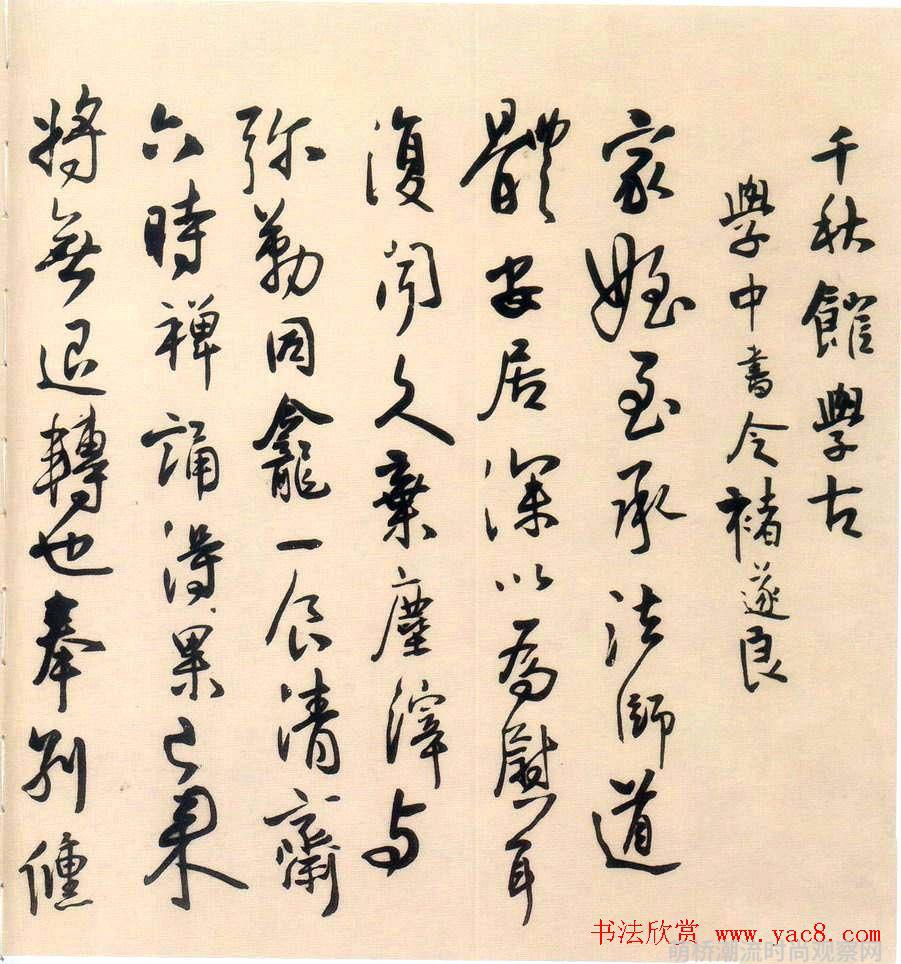 千秋館學古
學中書令褚遂良
家姪至承法師道
體安居深以為慰耳
復聞久棄塵滓与
弥勒同龕一食清齋
六時禪誦得果已来
將無退轉也奉別倏
书法欣赏 www.yac8.com
萌桥潮流时尚观察网